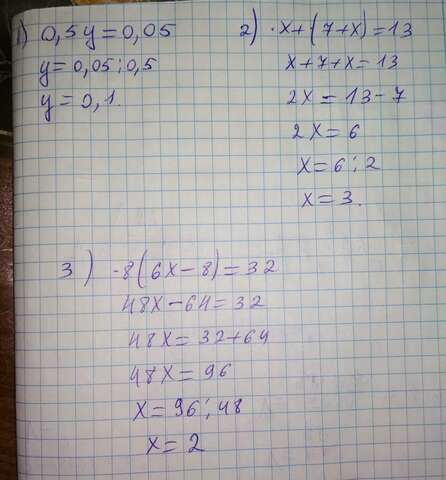 1) 0,5y = 0,05
y = 0,05 : 0,5
y = 0,1.
2) ·x+(7+x)=13
x+7+x=13
2x = 13-7
2x = 6
x=6:2
x=3.
3) ·8(6x-8)=32
48x-64=32
48x=32+64
48x=96
x=96:48
x=2